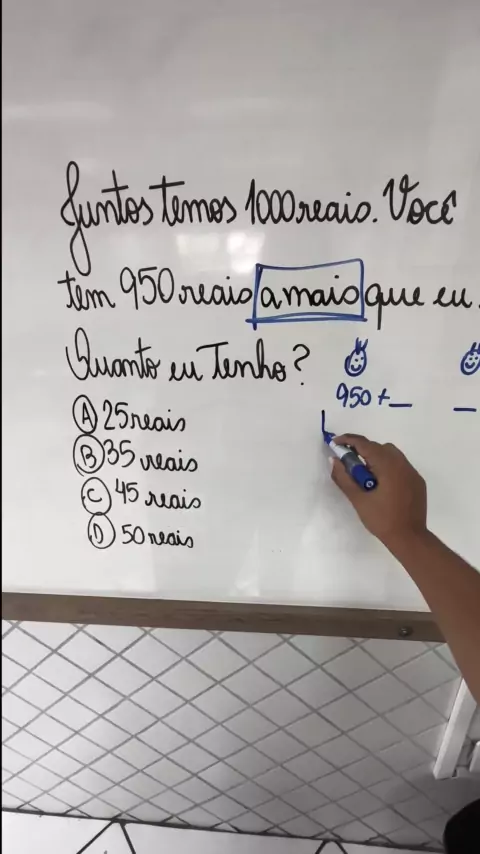 Juntos temos 1000 reais. Você
tem 950 reais a mais que eu.
Quanto eu Tenho?
A 25 reais
B 35 reais
C 45 reais
D 50 reais
950 + _ _